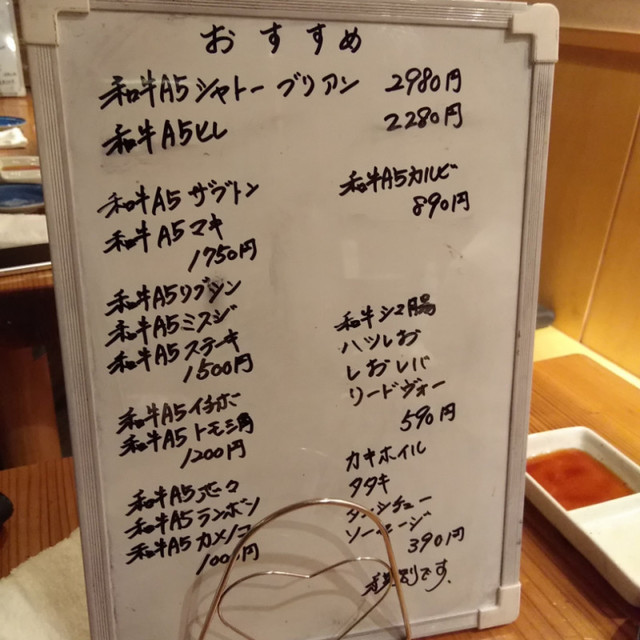 おすすめ
和牛A5シャトーブリアン 2980円
和牛A5ヒレ 2280円
和牛A5ザブトン
和牛A5マキ
1750円
和牛A5リブシン
和牛A5ミスジ
和牛A5ステーキ
1500円
和牛A5イチボ
和牛A5トモ三角
1200円
和牛A5
和牛A5ランボソ
和牛A5カメノコ
1000円
和牛A5カルビ
890円
和牛シマ腸
ハツしお
しおレバ
リードヴォー
590円
カキホイル
タタキ
ソーセージ
390円
税別です。